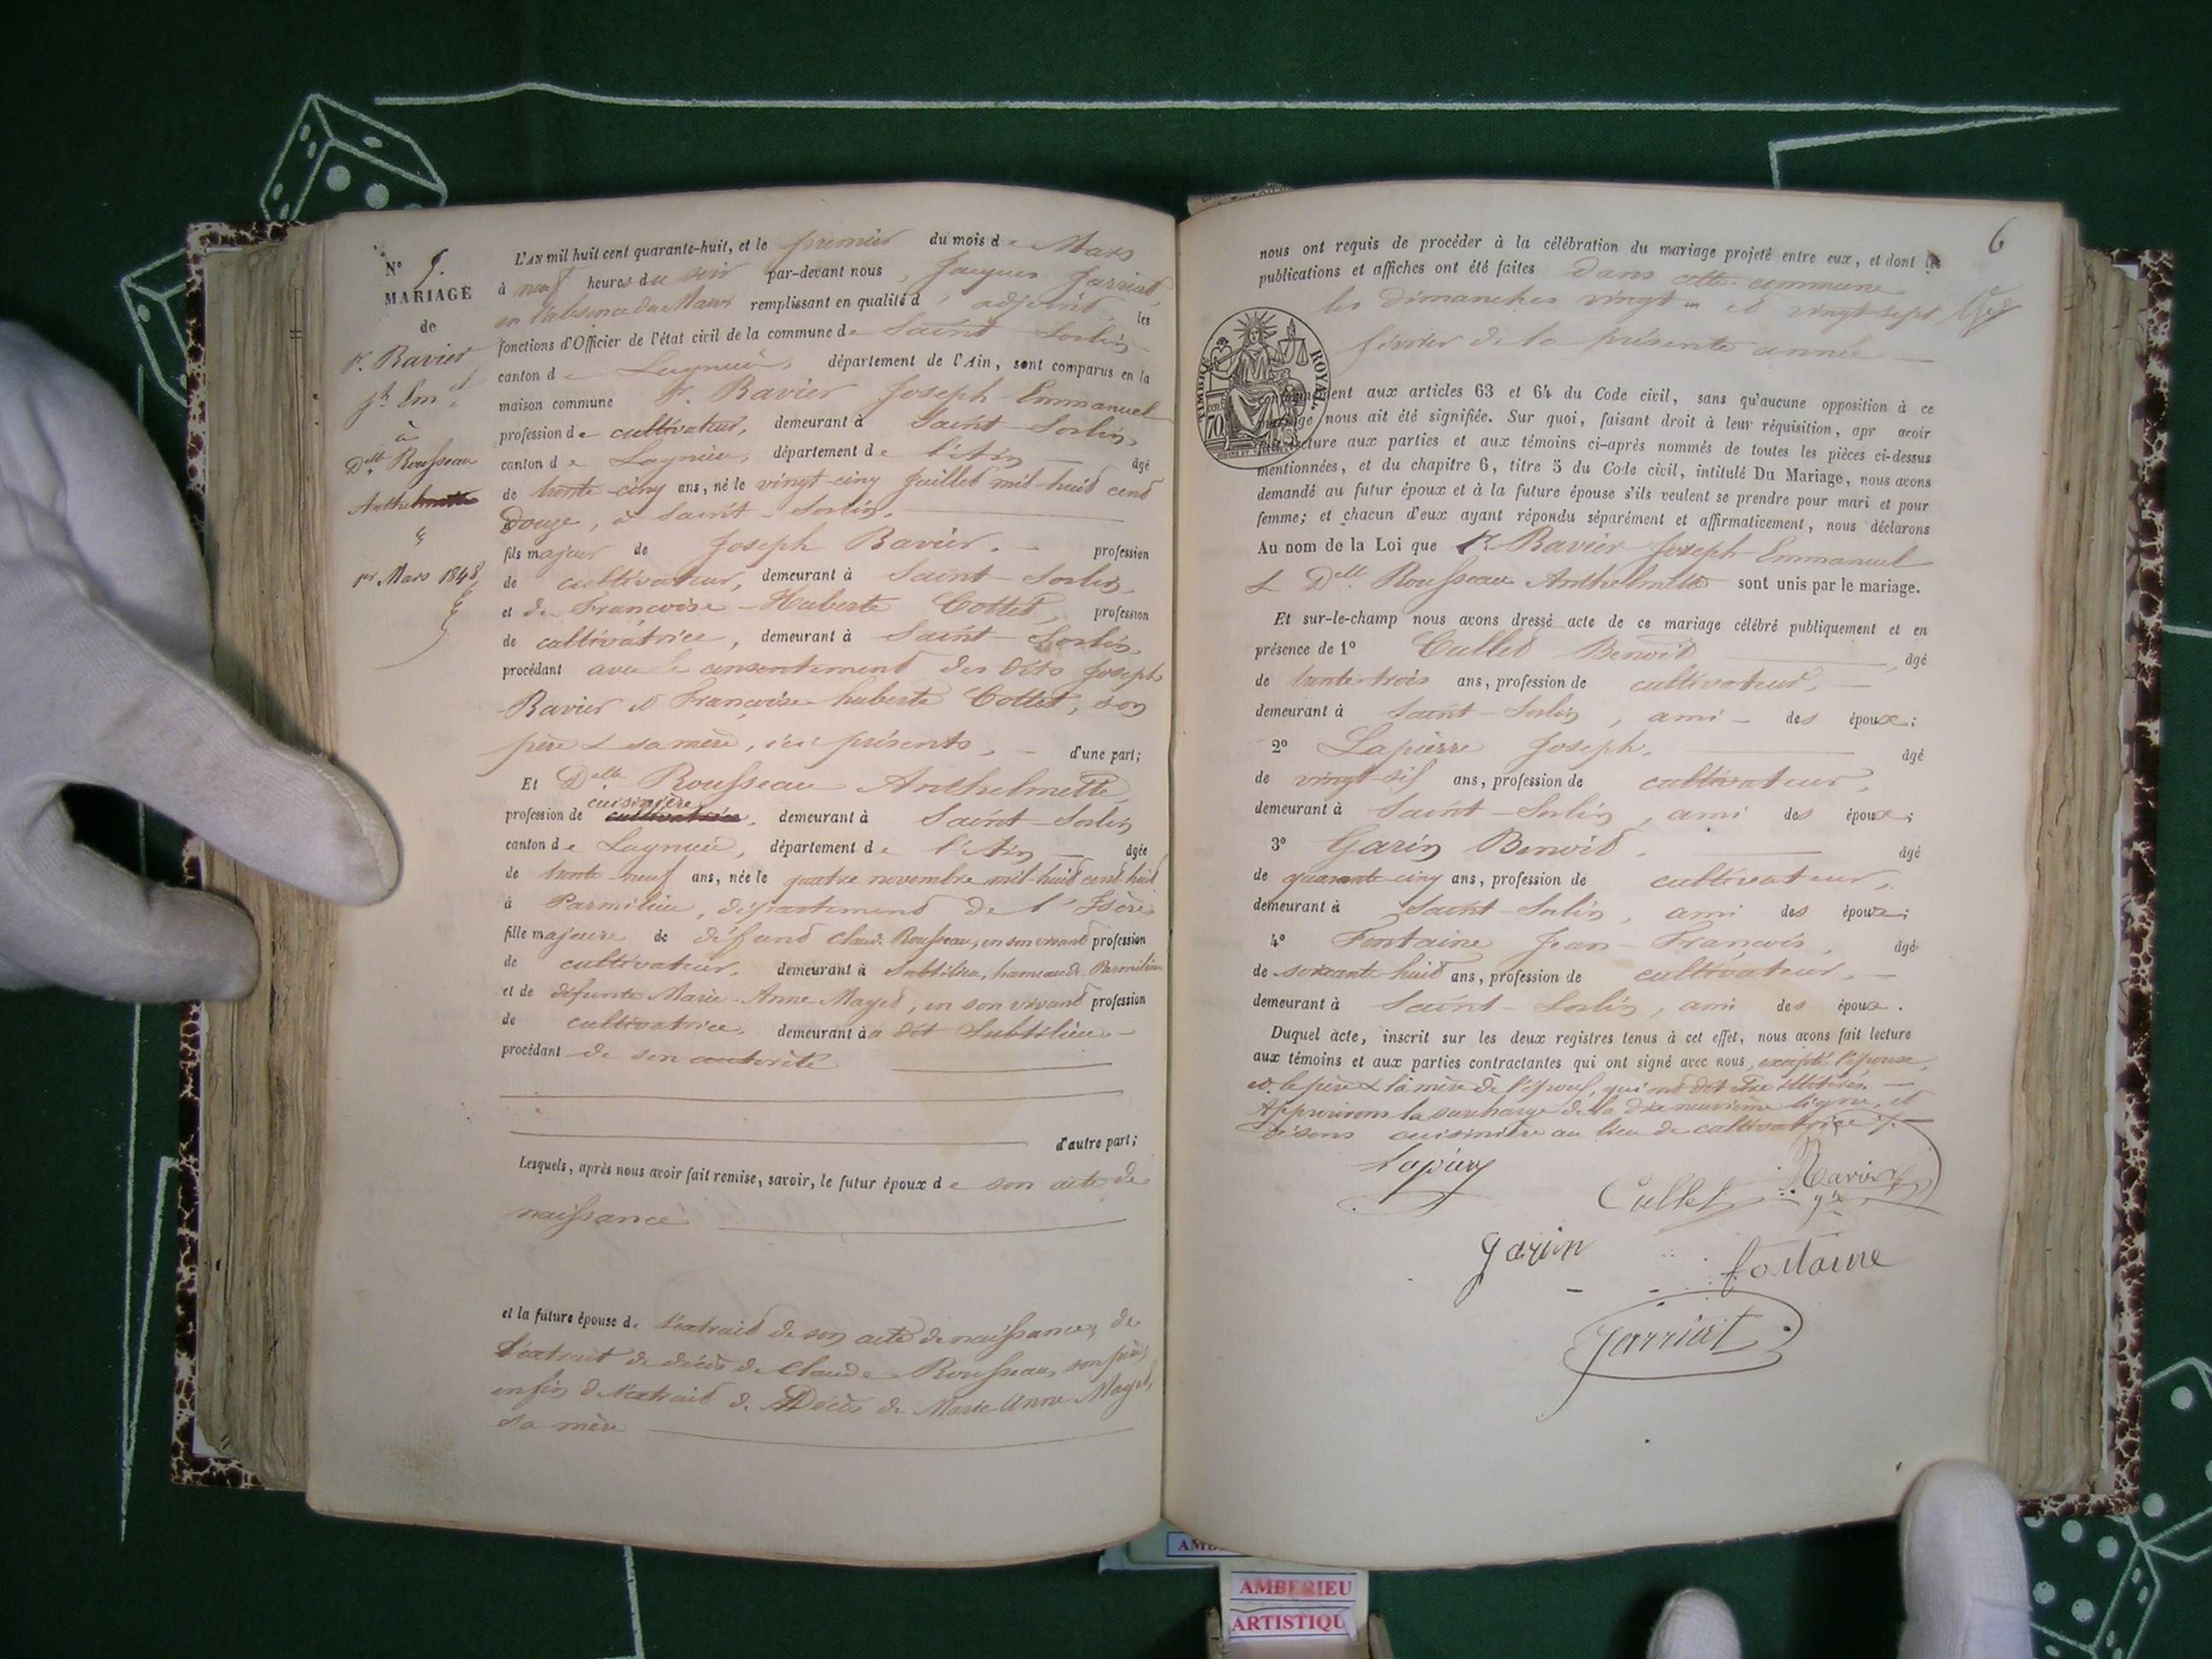 N° 5.
MARIAGE
de
F. Ravier
Jh Emel
à
Dlle Rousseau
Anthelmette
1er Mars 1848
L'AN mil huit cent quarante-huit, et le premier du mois de Mars
à neuf heures du soir par-devant nous, Jacques Jarriat,
en l'absence du Maire remplissant en qualité d'adjoint, les
fonctions d'Officier de l'état civil de la commune de Saint-Sorlin
canton de Lagnieu, département de l'Ain, sont comparus en la
maison commune F. Ravier Joseph-Emmanuel
profession de cultivateur, demeurant à Saint-Sorlin,
canton de Lagnieu, département de l'Ain âgé
de trente-cinq ans, né le vingt-cinq Juillet mil-huit cent
Douze, à Saint-Sorlin.
fils majeur de Joseph Ravier. profession
de cultivateur, demeurant à Saint-Sorlin,
et de Françoise-Huberte Cottet, profession
de cultivatrice, demeurant à Saint-Sorlin,
procédant avec le consentement des dits Joseph
Ravier et Françoise huberte Cottet, son
père & sa mère, ici présents, d'une part;
Et Dlle Rousseau Anthelmette,
cuisinière
profession de cultivatrice, demeurant à Saint-Sorlin
canton de Lagnieu, département de l'Ain âgée
de trente-neuf ans, née le quatre novembre mil-huit cent-huit
à Parmilieu, département de l'Isère
fille majeure de défunt Claude Rousseau, en son vivant profession
de cultivateur, demeurant à Subtilieu, hameau de Parmilieu
et de défunte Marie-Anne Mayet, en son vivant profession
de cultivatrice, demeurant à a dit Subtilieu
procédant de son autorité
d'autre part;
Lesquels, après nous avoir fait remise, savoir, le futur époux de son acte de
naissance
et la future épouse de l'extrait de son acte de naissance, de
l'extrait de décès de Claude Rousseau, son père,
enfin de l'extrait de Décès de Marie Anne Mayet,
sa mère
6
nous ont requis de procéder à la célébration du mariage projeté entre eux, et dont les
publications et affiches ont été faites dans cette commune
les dimanches vingt et vingt-sept
février de la présente année
TIMBRE ROYAL
70
aux articles 63 et 64 du Code civil, sans qu'aucune opposition à ce
mariage nous ait été signifiée. Sur quoi, faisant droit à leur réquisition, apr avoir
lecture aux parties et aux témoins ci-après nommés de toutes les pièces ci-dessus
mentionnées, et du chapitre 6, titre 5 du Code civil, intitulé Du Mariage, nous avons
demandé au futur époux et à la future épouse s'ils veulent se prendre pour mari et pour
femme; et chacun d'eux ayant répondu séparément et affirmaticement, nous déclarons
Au nom de la Loi que F. Ravier Joseph-Emmanuel
& Dlle Rousseau Anthelmette sont unis par le mariage.
Et sur-le-champ nous avons dressé acte de ce mariage célébré publiquement et en
présence de 1° Cullet Benoit âgé
de trente-trois ans, profession de cultivateur,
demeurant à Saint-Sorlin, ami des époux;
2° Lapierre Joseph, âgé
de vingt-six ans, profession de cultivateur,
demeurant à Saint-Sorlin, ami des époux;
3° Garin Benoit. âgé
de quarante-cinq ans, profession de cultivateur,
demeurant à Saint-Sorlin, ami des époux;
4° Fontaine Jean-François, âgé
de soixante-huit ans, profession de cultivateur,
demeurant à Saint-Sorlin, ami des époux.
Duquel acte, inscrit sur les deux registres tenus à cet effet, nous avons fait lecture
aux témoins et aux parties contractantes qui ont signé avec nous, excepté l'épouse,
et le père & la mère de l'époux, qui ont dit être illitérés.
Approuvons la surcharge de la dix neuvième ligne, et
disons cuisinière au lieu de cultivatrice
Lapierre
Cullet
Ravier
Garin
fontaine
Jarriat
AMBERIEU
ARTISTIQU